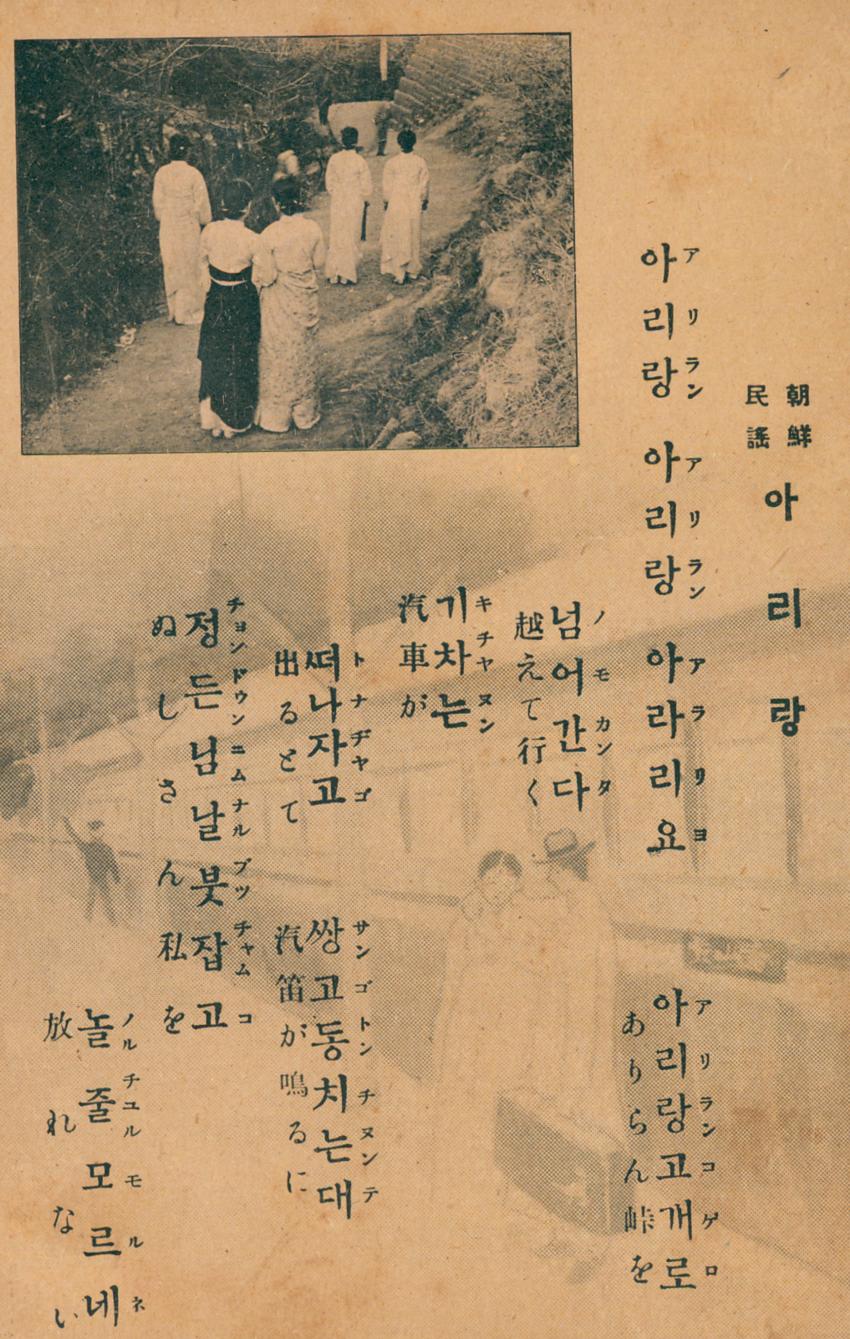 朝鮮
民謠
아리랑
아리랑 아리랑 아라리요
アリラン アリラン アラリヨ
아리랑고개로
アリランコゲロ
ありらん峠を
넘어간다
ノモカンタ
越えて行く
기차는
キチヤヌン
汽車が
떠나자고
トナヂヤゴ
出るとて
쌍고동치는대
サンゴトンチヌンテ
汽笛が鳴るに
정든님날붓잡고
チヨンドウンニムナルプツチヤムコ
ぬしさん私を
놀줄모르네
ノルチユルモルネ
放れない